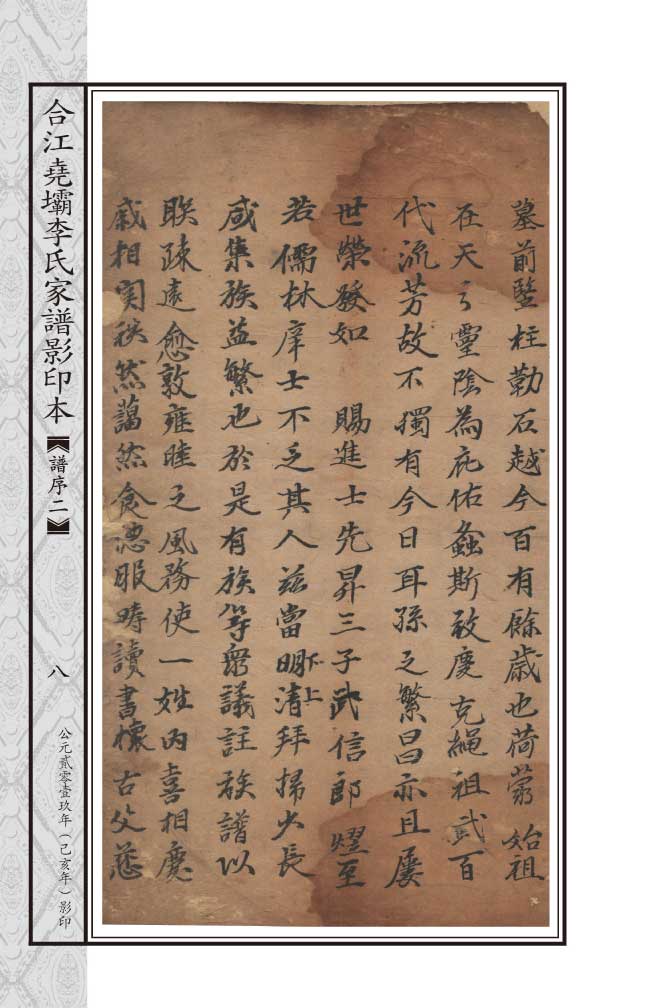 墓前豎柱勒石越今百有餘歲也荷蒙 始祖
在天之靈陰為庇佑螽斯啟慶克繩祖武百
代流芳故不獨有今日耳孫之繁昌亦且屢
世榮發如 賜進士先昇三子武信郎 燿至
若儒林庠士不乏其人茲當明下清上拜掃少長
咸集族益繁也於是有族等衆議註族譜以
聯疎遠愈敦雍睦之風務使一姓內喜相慶
戚相関秩然藹然食德服疇讀書懷古父慈
合江堯壩李氏家譜影印本
【譜序二】
八
公元貳零壹玖年（己亥年）影印